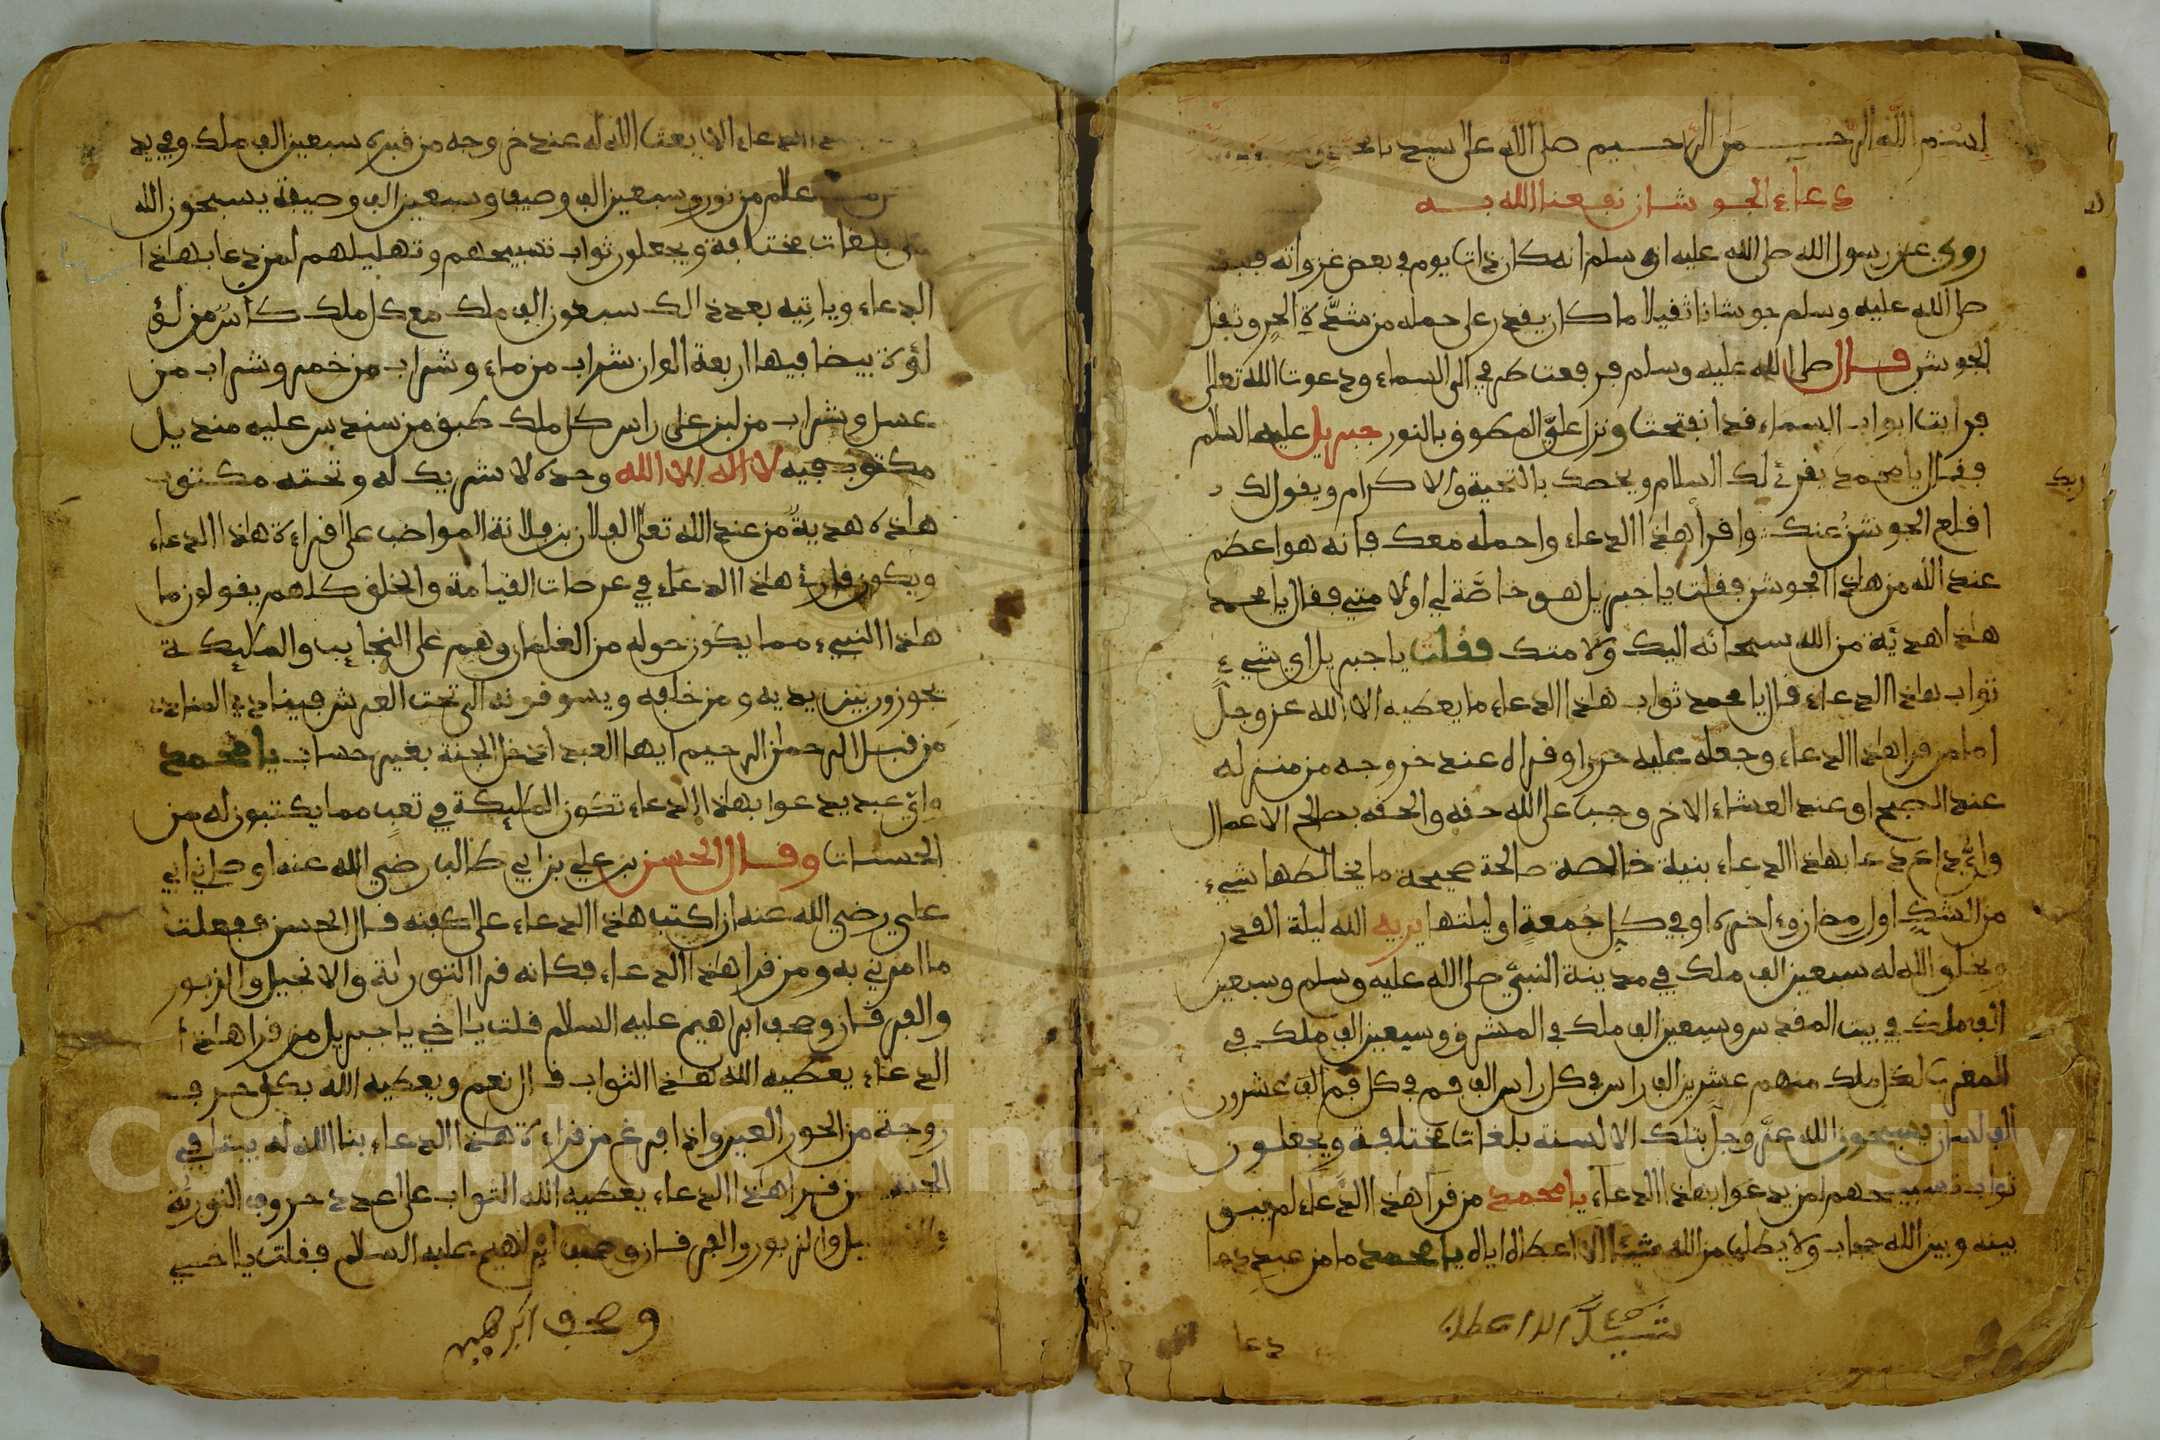 بسم الله الرحمن الرحيم صلى الله على سيدنا محمد
دعاء الجوشان نفعنا الله به
روي عن رسول الله صلى الله عليه وسلم انه كان ذات يوم في بعض غزواته
صلى الله عليه وسلم جوشانا ثقيلا ما كان يقدر على حمله من شدة الحر وثقل
الجوشن قال صلى الله عليه وسلم فرفعت طرفي الى السماء ودعوت الله تعالى
فرايت ابواب السماء قد انفتحت ونزل علي المطوق بالنور جبريل عليه السلم
فقال يا محمد يقرئك السلام ويخصك بالتحية والاكرام ويقول لك
ربك
اقلع الجوشن عنك واقرأ هاذا الدعاء واحمله معك فانه هو اعظم
عند الله من هاذا الجوشن فقلت يا جبريل هو خاصة لي او لامتي فقال يا محمد
هاذا هدية من الله سبحانه اليك ولامتك فقلت يا جبريل اي شيء
ثواب هاذا الدعاء قال يا محمد ثواب هاذا الدعاء ما يعطيه الا الله عز وجل
اما من قرا هاذا الدعاء وجعله عليه حرزا وقراه عند خروجه من منزله
عند الصبح او عند العشاء الاخر وجب على الله حقه والحقه بصالح الاعمال
واي داع دعا بهاذا الدعاء بنية خالصة صالحة صحيحة ما يخالطها شيء
من الشك اول رمضان وءاخره او في كل جمعة او ليلتها يريه الله ليلة القدر
ويخلق الله له سبعين الف ملك في مدينة النبي صلى الله عليه وسلم وسبعين
الف ملك في بيت المقدس وسبعين الف ملك في المشرق وسبعين الف ملك في
المغرب لكل ملك منهم عشرين الف راس في كل راس الف فم في كل فم الف عشرون
الف لسان يسبحون الله عز وجل بتلك الالسنة بلغات مختلفة ويجعلون
ثواب تسبيحهم لمن يدعوا بهاذا الدعاء يا محمد من قرا هاذا الدعاء لم يبق
بينه وبين الله حجاب ولا يطلب من الله شيئا الا اعطاه اياه يا محمد ما من عبد دعا
دعا
الدعاء الا بعث الله له عند خروجه من قبره سبعين الف ملك وفي يد
علم من نور وسبعين الف وصيف وسبعين الف وصيفة يسبحون الله
بلغات مختلفة ويجعلون ثواب تسبيحهم وتهليلهم لمن دعا بهاذا
الدعاء وياتيه بعد ذالك سبعون الف ملك مع كل ملك كأس من لؤ
لؤة بيضا فيها اربعة الوان شراب من ماء وشراب من خمر وشراب من
عسل وشراب من لبن على راس كل ملك طبق من سندس عليه منديل
مكتوب فيه لا اله الا الله وحده لا شريك له وتحته مكتوب
هاذه هدية من عند الله تعلى لفلان بن فلانة المواضب على قراءة هاذا الدعاء
ويكون قارئ هاذا الدعاء في عرصات القيامة والخلق كلهم يقولون ما
هاذا النبيء مما يكون حوله من الغلمان وهم على النجايب والمليكة
يجوزون بين يديه ومن خلفه ويسوقونه الى تحت العرش فينادي المنادي
من قبل الرحمان الرحيم ايها العبد ادخل الجنة بغير حساب يا محمد
واي عبد يدعوا بهاذا الدعاء تكون المليكة في تعب مما يكتبون له من
الحسنات وقال الحسن بن علي بن ابي طالب رضي الله عنه اوصاني ابي
علي رضي الله عنه ان اكتب هاذا الدعاء على كفنه قال الحسن ففعلت
ما امرني به ومن قرا هاذا الدعاء فكانه قرا التوراة والانجيل والزبور
والفرقان وصحف ابراهيم عليه السلام قلت يا اخي يا جبريل من قرا هاذا
الدعاء يعطيه الله هاذا الثواب قال نعم ويعطيه الله بكل حرف
زوجة من الحور العين واذا فرغ من قراءة هاذا الدعاء بنا الله له بيتا في
الجنة من قرا هاذا الدعاء يعطيه الله الثواب على عدد حروف التورية
والزبور والفرقان وصحف ابراهيم عليه السلام فقلت يا اخي
وصحف ابرهيم
Copyright © King Saud University